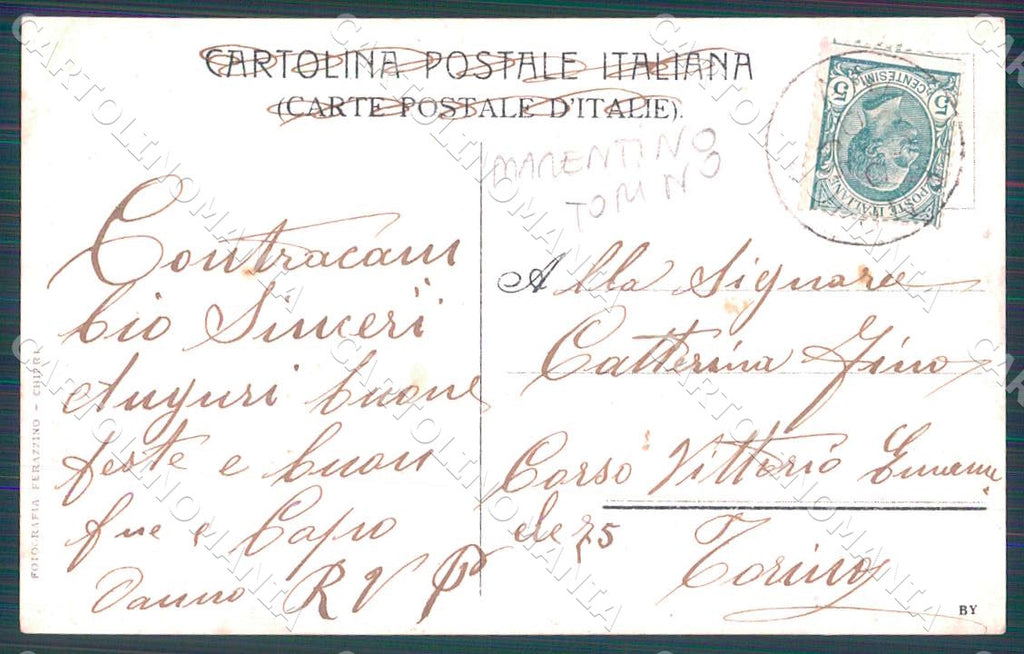 CARTOLINA POSTALE ITALIANA
(CARTE POSTALE D'ITALIE).
MARENTINO
TORINO
5 CENTESIMI 5
POSTE ITALIANE
Contracam
bio Sinceri
Auguri buone
feste e buon
fne e Capo
Danno R V P
Alla Signora
Catterina Fino
Corso Vittorio Emanu
ele 75
Torino
FOTOGRAFIA FERAZZINO - CHIERI
BY
CARTOLINOMANIA